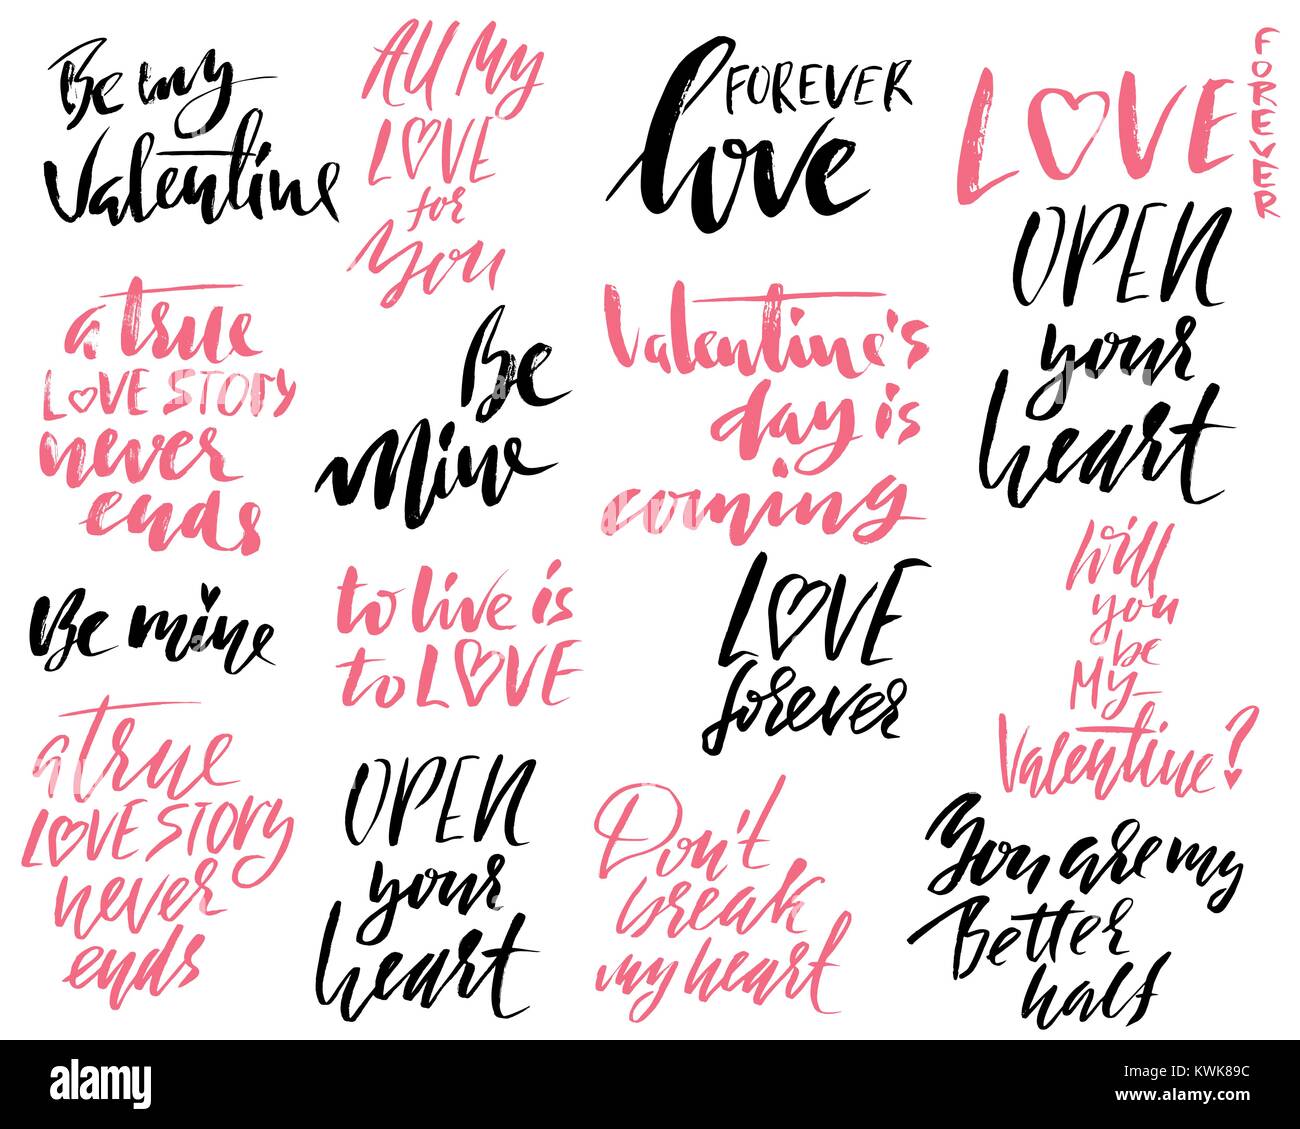 Be my
Valentine
All My
LOVE
for
You
FOREVER
love
LOVE
FOREVER
a true
LOVE STORY
never
ends
Be
Mine
Valentine's
day is
coming
OPEN
your
heart
Be mine
to live is
to LOVE
LOVE
forever
Will
you
be
My
Valentine?
a TRUE
LOVE STORY
never
ends
OPEN
your
heart
Don't
break
my heart
You are my
Better
half
alamy
Image ID: KWK89C
www.alamy.com